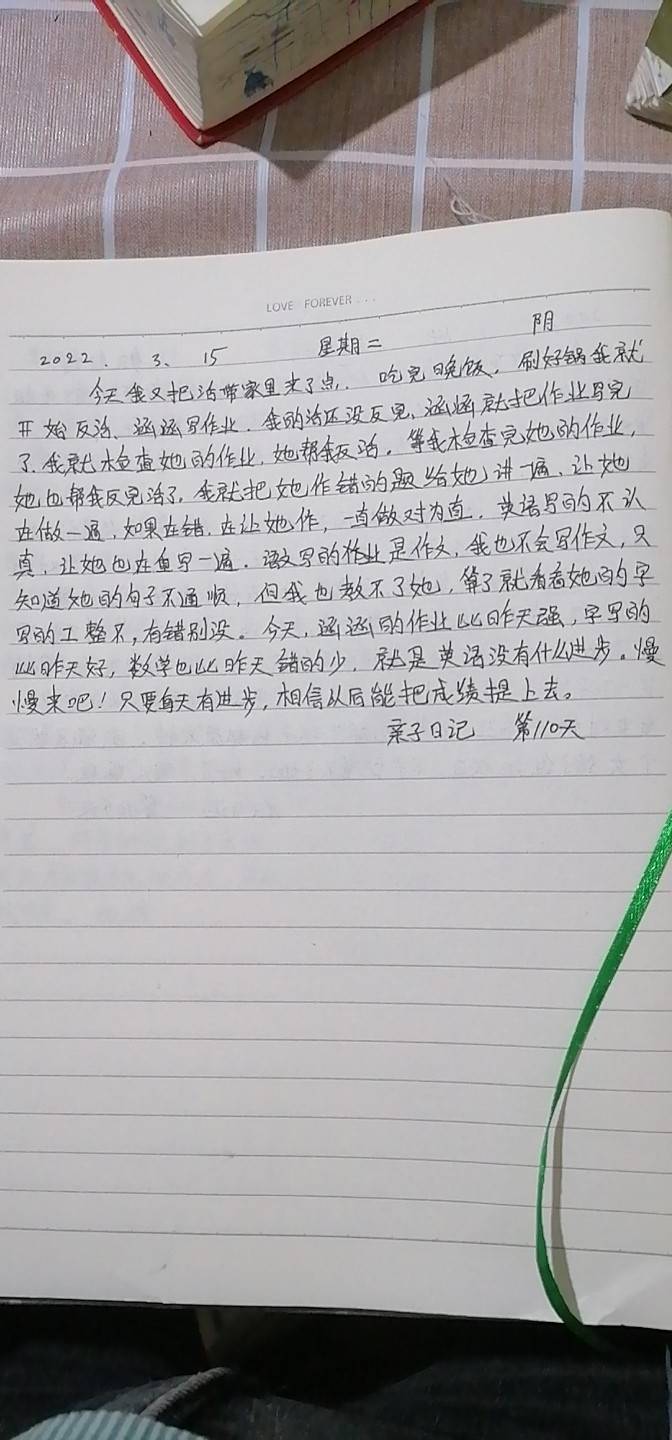 LOVE FOREVER ...
2022. 3. 15 星期二 阴
今天我又把活带家里来了点. 吃完晚饭, 刷好锅我就
开始反活、涵涵写作业. 我的活还没反完、涵涵就把作业写完
了. 我就检查她的作业, 她帮我反活。等我检查完她的作业,
她也帮我反完活了, 我就把她作错的题给她讲一遍、让她
在做一遍, 如果在错, 在让她作, 一直做对为直. 英语写的不认
真, 让她也在重写一遍. 语文写的作业是作文, 我也不会写作文, 只
知道她的句子不通顺, 但我也教不了她, 算了就看看她的字
写的工整不, 有错别没。今天, 涵涵的作业比昨天强, 字写的
比昨天好, 数学也比昨天错的少, 就是英语没有什么进步。慢
慢来吧! 只要每天有进步, 相信以后能把成绩提上去。
亲子日记 第110天